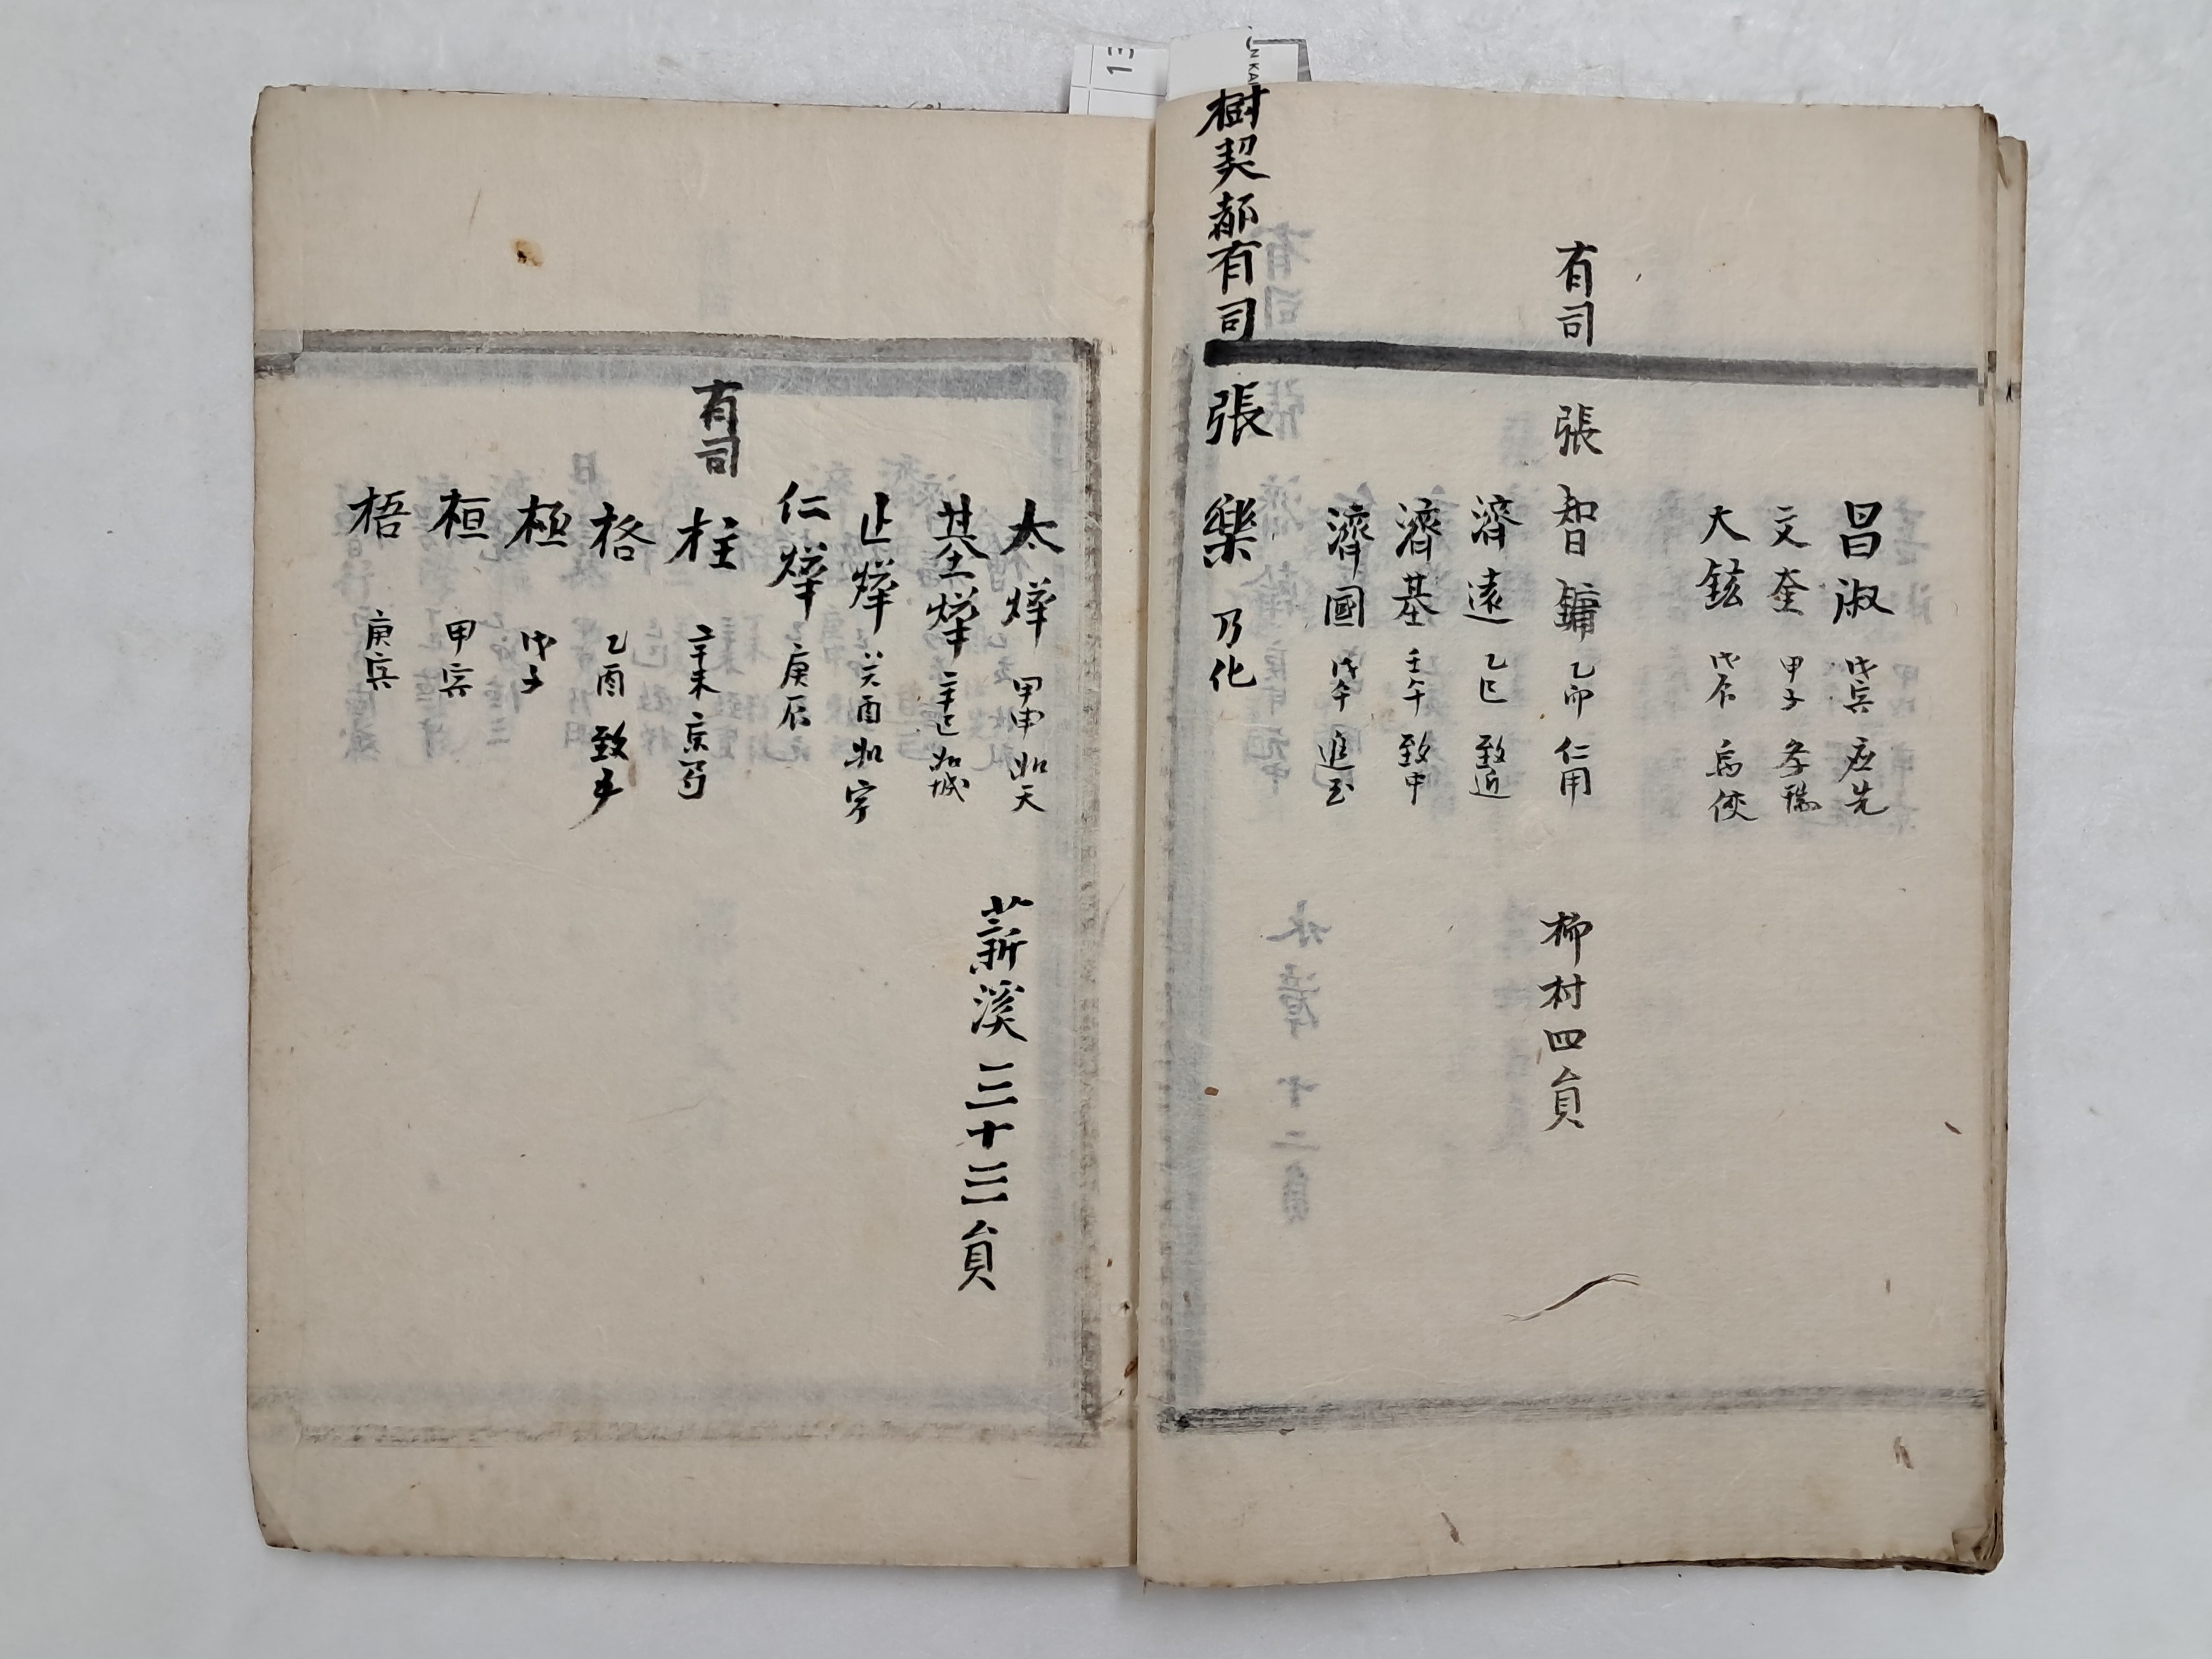 昌淑 戊寅 應先
文奎 甲子 孝瑞
大鉉 戊辰
有司 張智鏞 乙卯 仁用 柳村四員
濟遠 乙巳 致近
濟基 壬午 致中
濟國 戊午 進玉
樹契都有司 張樂 乃化
太燁 甲申 如天
薪溪三十三員
基燁 辛巳 如城
止燁 癸酉 如字
仁燁 庚辰
有司 柱 辛未
格 乙酉
極 戊子
桓 甲寅
梧 庚寅
13